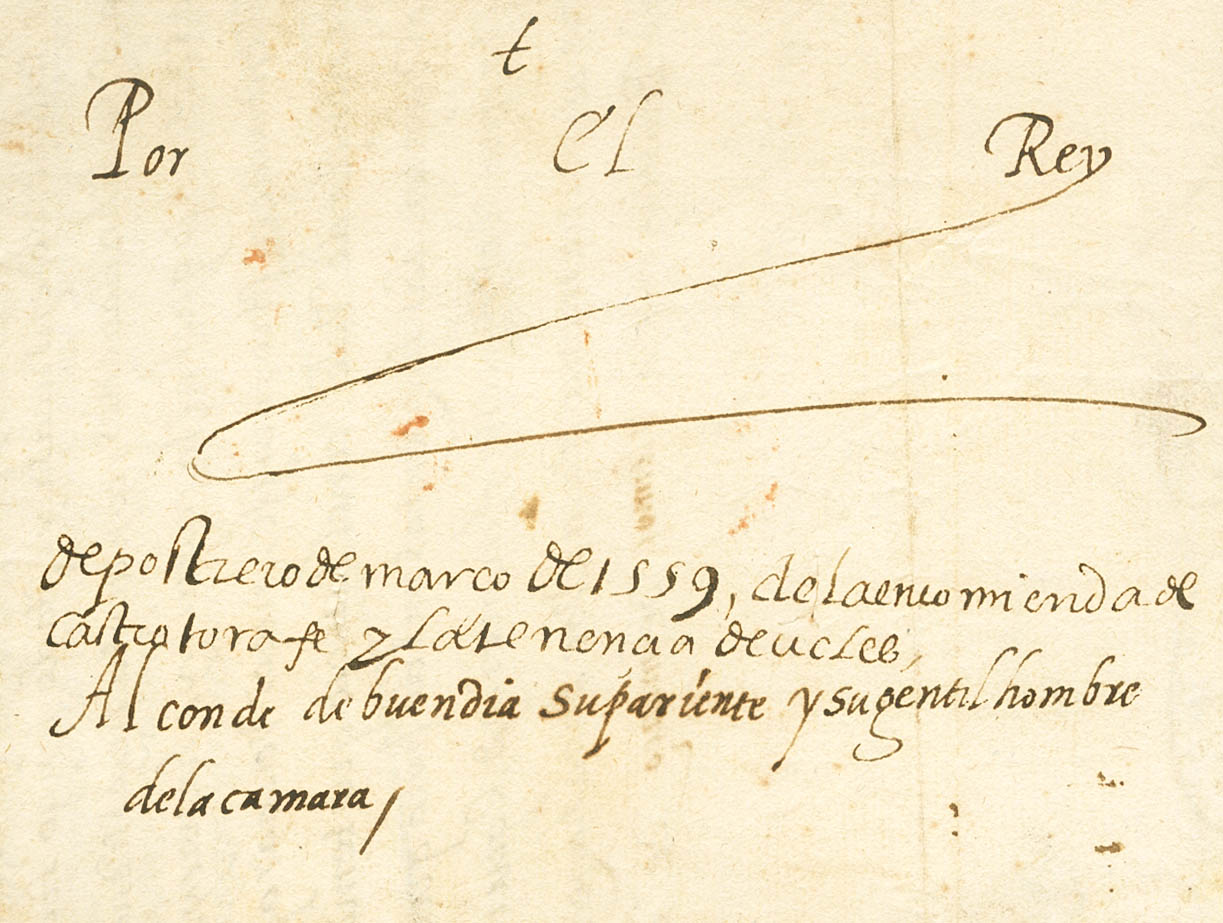 t
Por El Rey
de postrero de março de 1559, de la encomienda de
castrotorafe y la tenencia de ucles,
Al conde de buendia su pariente y su gentil hombre
de la camara,